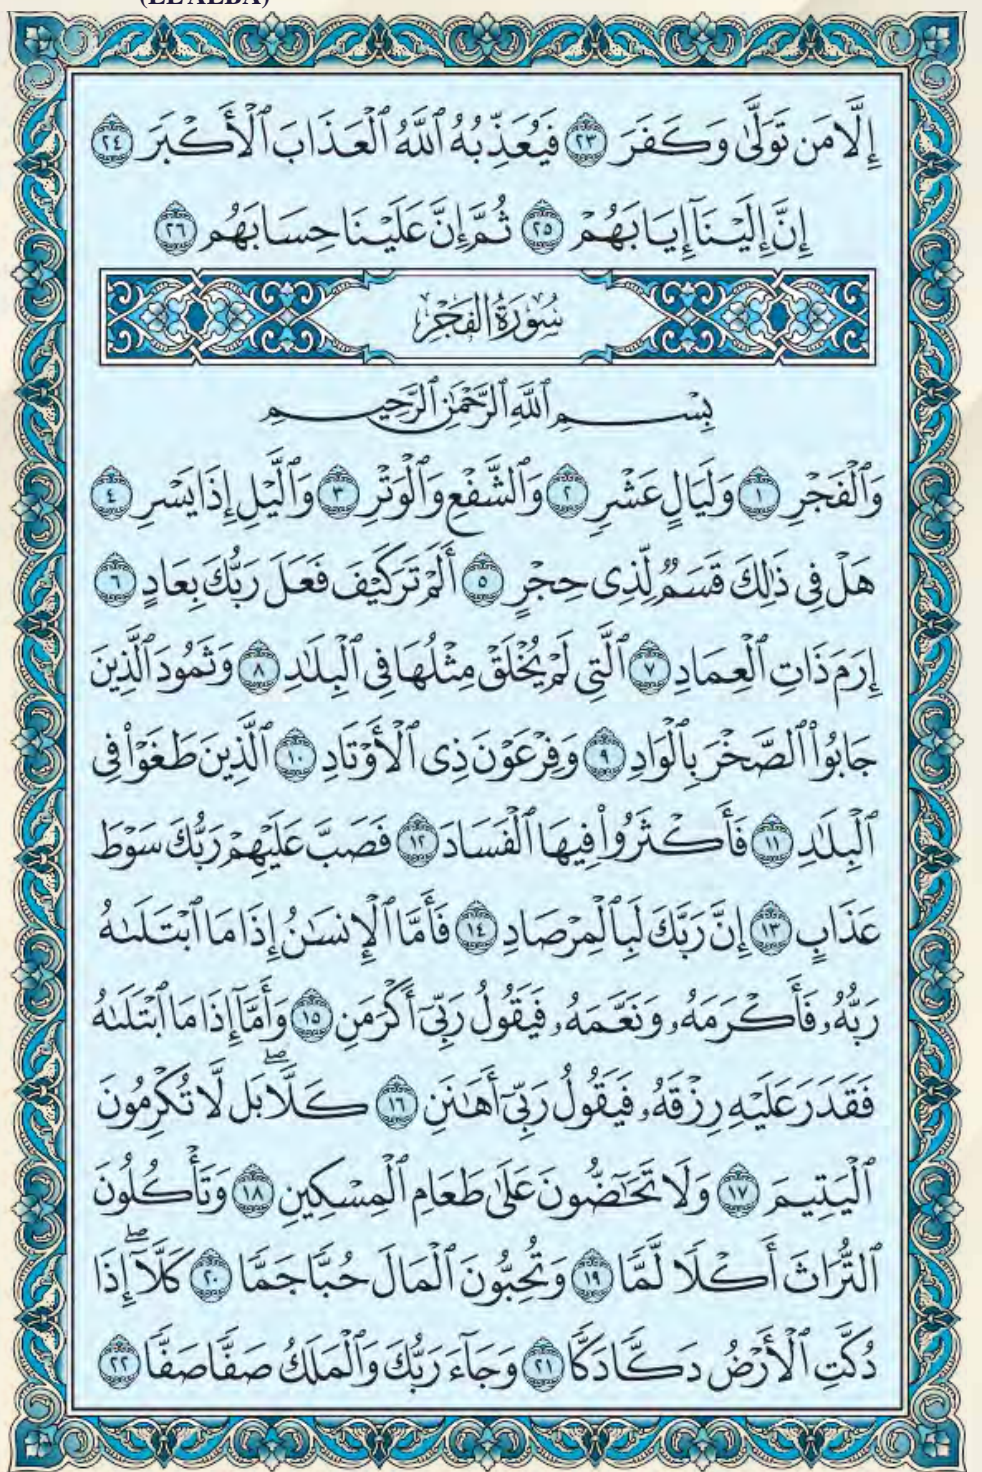 (EL ALBA)
إِلَّا مَن تَوَلَّىٰ وَكَفَرَ ٢٣ فَيُعَذِّبُهُ ٱللَّهُ ٱلْعَذَابَ ٱلْأَكْبَرَ ٢٤
إِنَّ إِلَيْنَآ إِيَابَهُمْ ٢٥ ثُمَّ إِنَّ عَلَيْنَا حِسَابَهُم ٢٦
سُورَةُ الفَجْرِ
بِسْمِ ٱللَّهِ ٱلرَّحْمَٰنِ ٱلرَّحِيمِ
وَٱلْفَجْرِ ١ وَلَيَالٍ عَشْرٍ ٢ وَٱلشَّفْعِ وَٱلْوَتْرِ ٣ وَٱلَّيْلِ إِذَا يَسْرِ ٤
هَلْ فِى ذَٰلِكَ قَسَمٌ لِّذِى حِجْرٍ ٥ أَلَمْ تَرَ كَيْفَ فَعَلَ رَبُّكَ بِعَادٍ ٦
إِرَمَ ذَاتِ ٱلْعِمَادِ ٧ ٱلَّتِى لَمْ يُخْلَقْ مِثْلُهَا فِى ٱلْبِلَٰدِ ٨ وَثَمُودَ ٱلَّذِينَ
جَابُوا۟ ٱلصَّخْرَ بِٱلْوَادِ ٩ وَفِرْعَوْنَ ذِى ٱلْأَوْتَادِ ١٠ ٱلَّذِينَ طَغَوْا۟ فِى
ٱلْبِلَٰدِ ١١ فَأَكْثَرُوا۟ فِيهَا ٱلْفَسَادَ ١٢ فَصَبَّ عَلَيْهِمْ رَبُّكَ سَوْطَ
عَذَابٍ ١٣ إِنَّ رَبَّكَ لَبِٱلْمِرْصَادِ ١٤ فَأَمَّا ٱلْإِنسَٰنُ إِذَا مَا ٱبْتَلَىٰهُ
رَبُّهُۥ فَأَكْرَمَهُۥ وَنَعَّمَهُۥ فَيَقُولُ رَبِّىٓ أَكْرَمَنِ ١٥ وَأَمَّآ إِذَا مَا ٱبْتَلَىٰهُ
فَقَدَرَ عَلَيْهِ رِزْقَهُۥ فَيَقُولُ رَبِّىٓ أَهَٰنَنِ ١٦ كَلَّاۖ بَل لَّا تُكْرِمُونَ
ٱلْيَتِيمَ ١٧ وَلَا تَحَٰٓضُّونَ عَلَىٰ طَعَامِ ٱلْمِسْكِينِ ١٨ وَتَأْكُلُونَ
ٱلتُّرَاثَ أَكْلًا لَّمًّا ١٩ وَتُحِبُّونَ ٱلْمَالَ حُبًّا جَمًّا ٢٠ كَلَّآۖ إِذَا
دُكَّتِ ٱلْأَرْضُ دَكًّا دَكًّا ٢١ وَجَآءَ رَبُّكَ وَٱلْمَلَكُ صَفًّا صَفًّا ٢٢